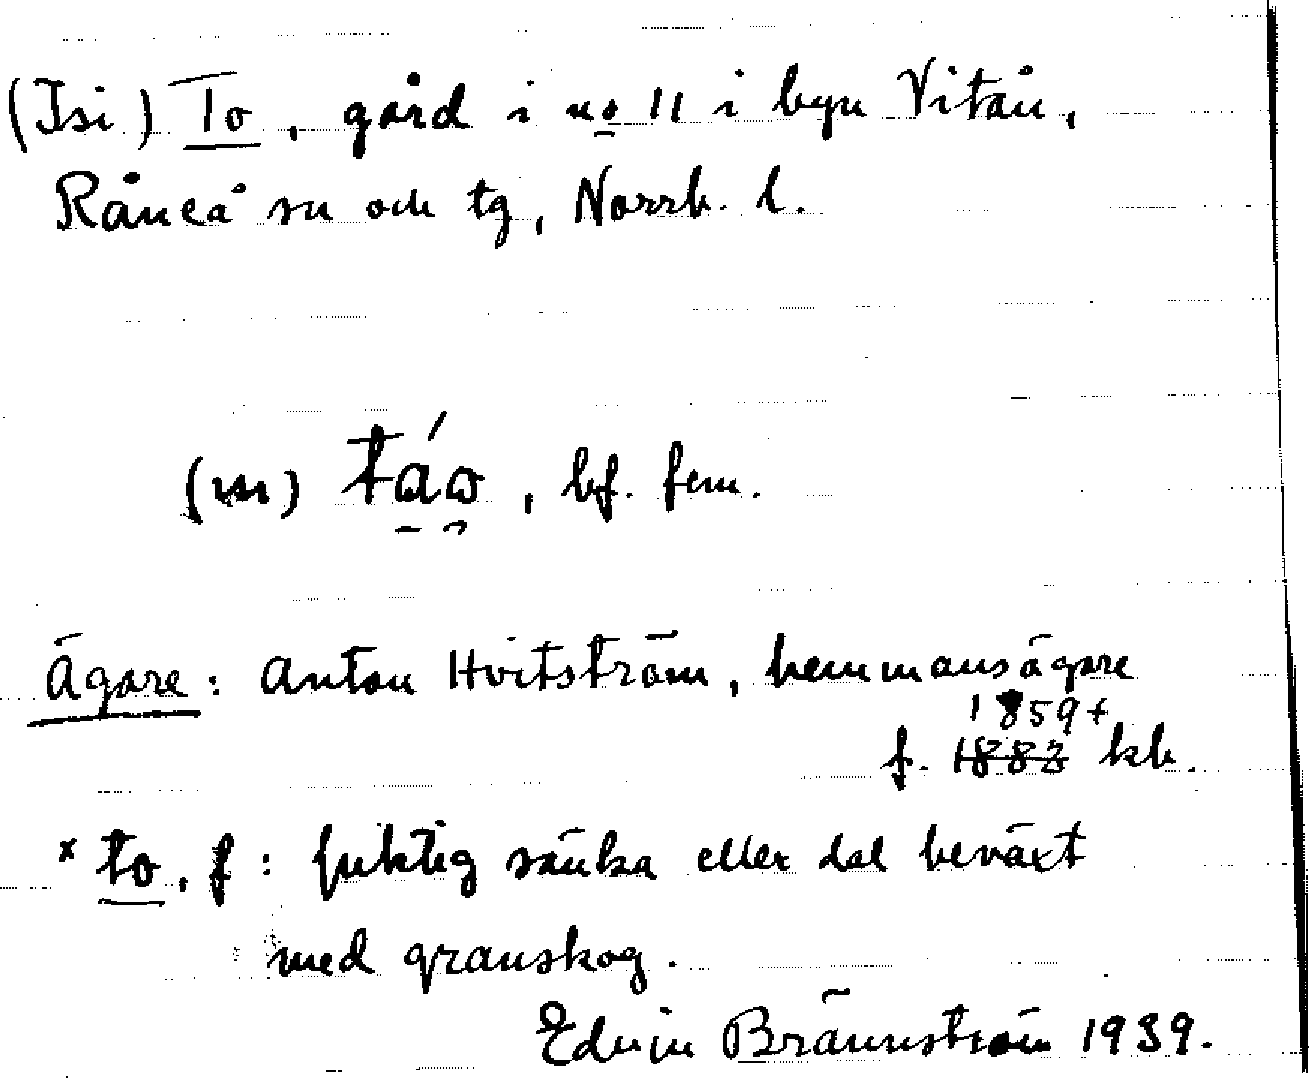 (Isi) To, gård i no 11 i byn Vitån,
Råneå sn och tg, Norrb. l.
(m) táo, bf. fem.
Ägare: Anton Hvitström, hemmansägare
1859+
f. 1883 kb.
x to, f: fuktig sänka eller dal beväxt
med granskog.
Edvin Brännström 1939.